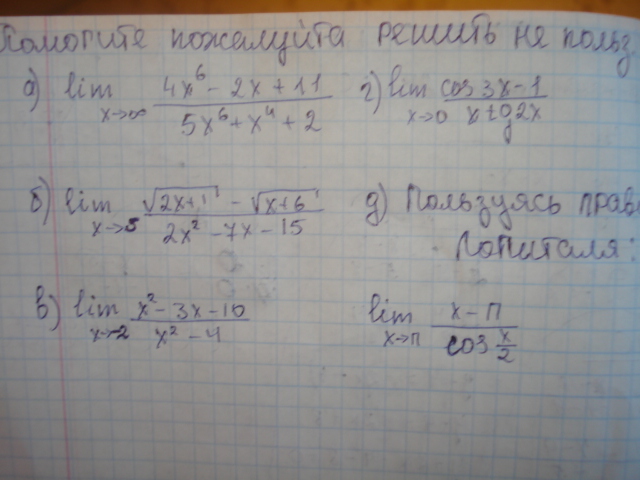 Помогите пожалуйта решить не польз
а) lim x→∞ (4x⁶ - 2x + 11)/(5x⁶ + x⁴ + 2)
г) lim x→0 (cos 3x - 1)/(x tg 2x)
б) lim x→5 (√(2x+1) - √(x+6))/(2x² - 7x - 15)
д) Пользуясь прав
Лопиталя:
в) lim x→-2 (x² - 3x - 10)/(x² - 4)
lim x→π (x - π)/(cos x/2)